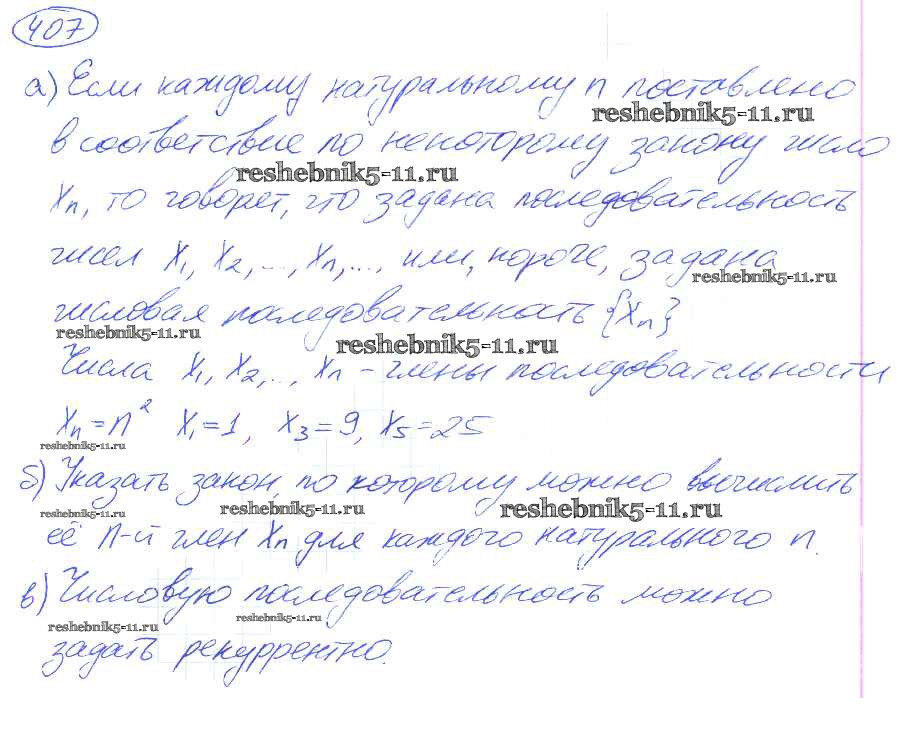 407
а) Если каждому натуральному n поставлено
reshebnik5-11.ru
в соответствие по некоторому закону число
reshebnik5-11.ru
Xn, то говорят, что задана последовательность
чисел X1, X2, ..., Xn, ..., или, короче, задана
reshebnik5-11.ru
числовая последовательность {Xn}
reshebnik5-11.ru
reshebnik5-11.ru
Числа X1, X2, .., Xn – члены последовательности
Xn = n² X1 = 1, X3 = 9, X5 = 25
reshebnik5-11.ru
б) Указать закон, по которому можно вычислить
reshebnik5-11.ru reshebnik5-11.ru reshebnik5-11.ru
её n-й член Xn для каждого натурального n.
в) Числовую последовательность можно
reshebnik5-11.ru reshebnik5-11.ru
задать рекуррентно.